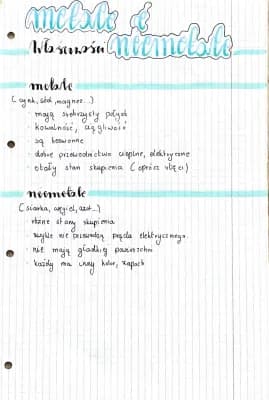 metale i
Własności niemetale
metale
(cynk, stal, magnez...)
· mają srebrzysty połysk
· kowalność, ciągliwość
· są bezwonne
· dobre przewodnictwo cieplne, elektryczne
· stały stan skupienia (oprócz rtęci)
niemetale
(siarka, węgiel, azot...)
· różne stany skupienia
· zwykle nie przewodzą prądu elektrycznego.
· nie mają gładkiej powierzchni
· każdy ma inny kolor, zapach